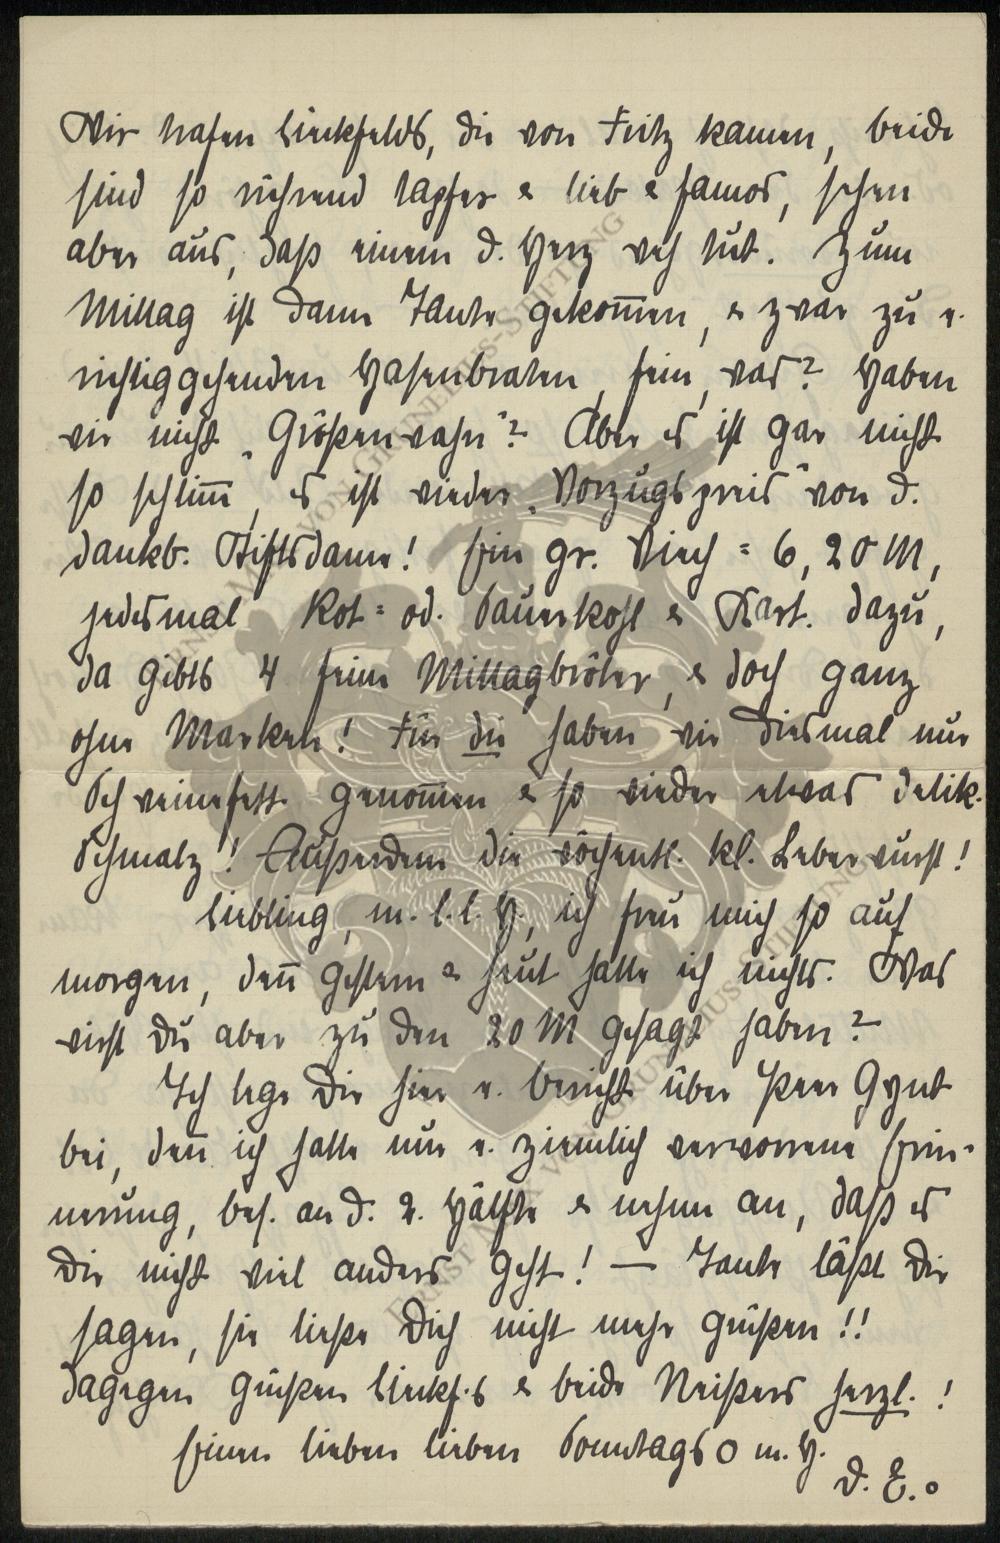 Wir trafen Linkfelds, die von Fritz kamen, beide
sind so rührend tapfer & lieb & famos, sehen
aber aus, daß einem d. Herz weh tut. Zum
Mittag ist dann Tante gekom̄en, & zwar zu e.
richtiggehenden Hasenbraten, fein, was? Haben
wir nicht „Größenwahn"? Aber es ist gar nicht
so schlim̄, es ist wieder „Vorzugspreis" von d.
dankb. Stiftsdame! Ein gr. Viech = 6,20 M,
jedesmal Rot= od. Sauerkohl & Kart. dazu,
da gibts 4 feine Mittagbröter, & doch ganz
ohne Marken! Für die haben wir diesmal nur
Schweinefett genom̄en & so wieder etwas delik.
Schmalz! Außerdem die wöchentl. kl. Leberwurst!
Liebling, m. l. l. H., ich freu mich so auf
morgen, den̄ gestern & heut hatte ich nichts. Was
wirst Du aber zu den 20 M gesagt haben?
Ich lege Dir hier e. Bericht über Peer Gynt
bei, den̄ ich hatte nur e. ziemlich verworrene Erin-
nerung, bes. an d. 2. Hälfte & nehme an, daß es
Dir nicht viel anders geht! — Tante läßt Dir
sagen, sie ließe Dich nicht mehr grüßen!!
Dagegen grüßen Linkf.s & beide Neißers herzl.!
Einen lieben lieben Sonntags O m. H.
D. E.
ERNST MAX VON GRUNELIUS-STIFTUNG
ERNST MAX VON GRUNELIUS-STIFTUNG